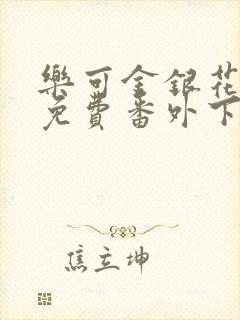 樂可金銀花
免費番外下
焦立坤